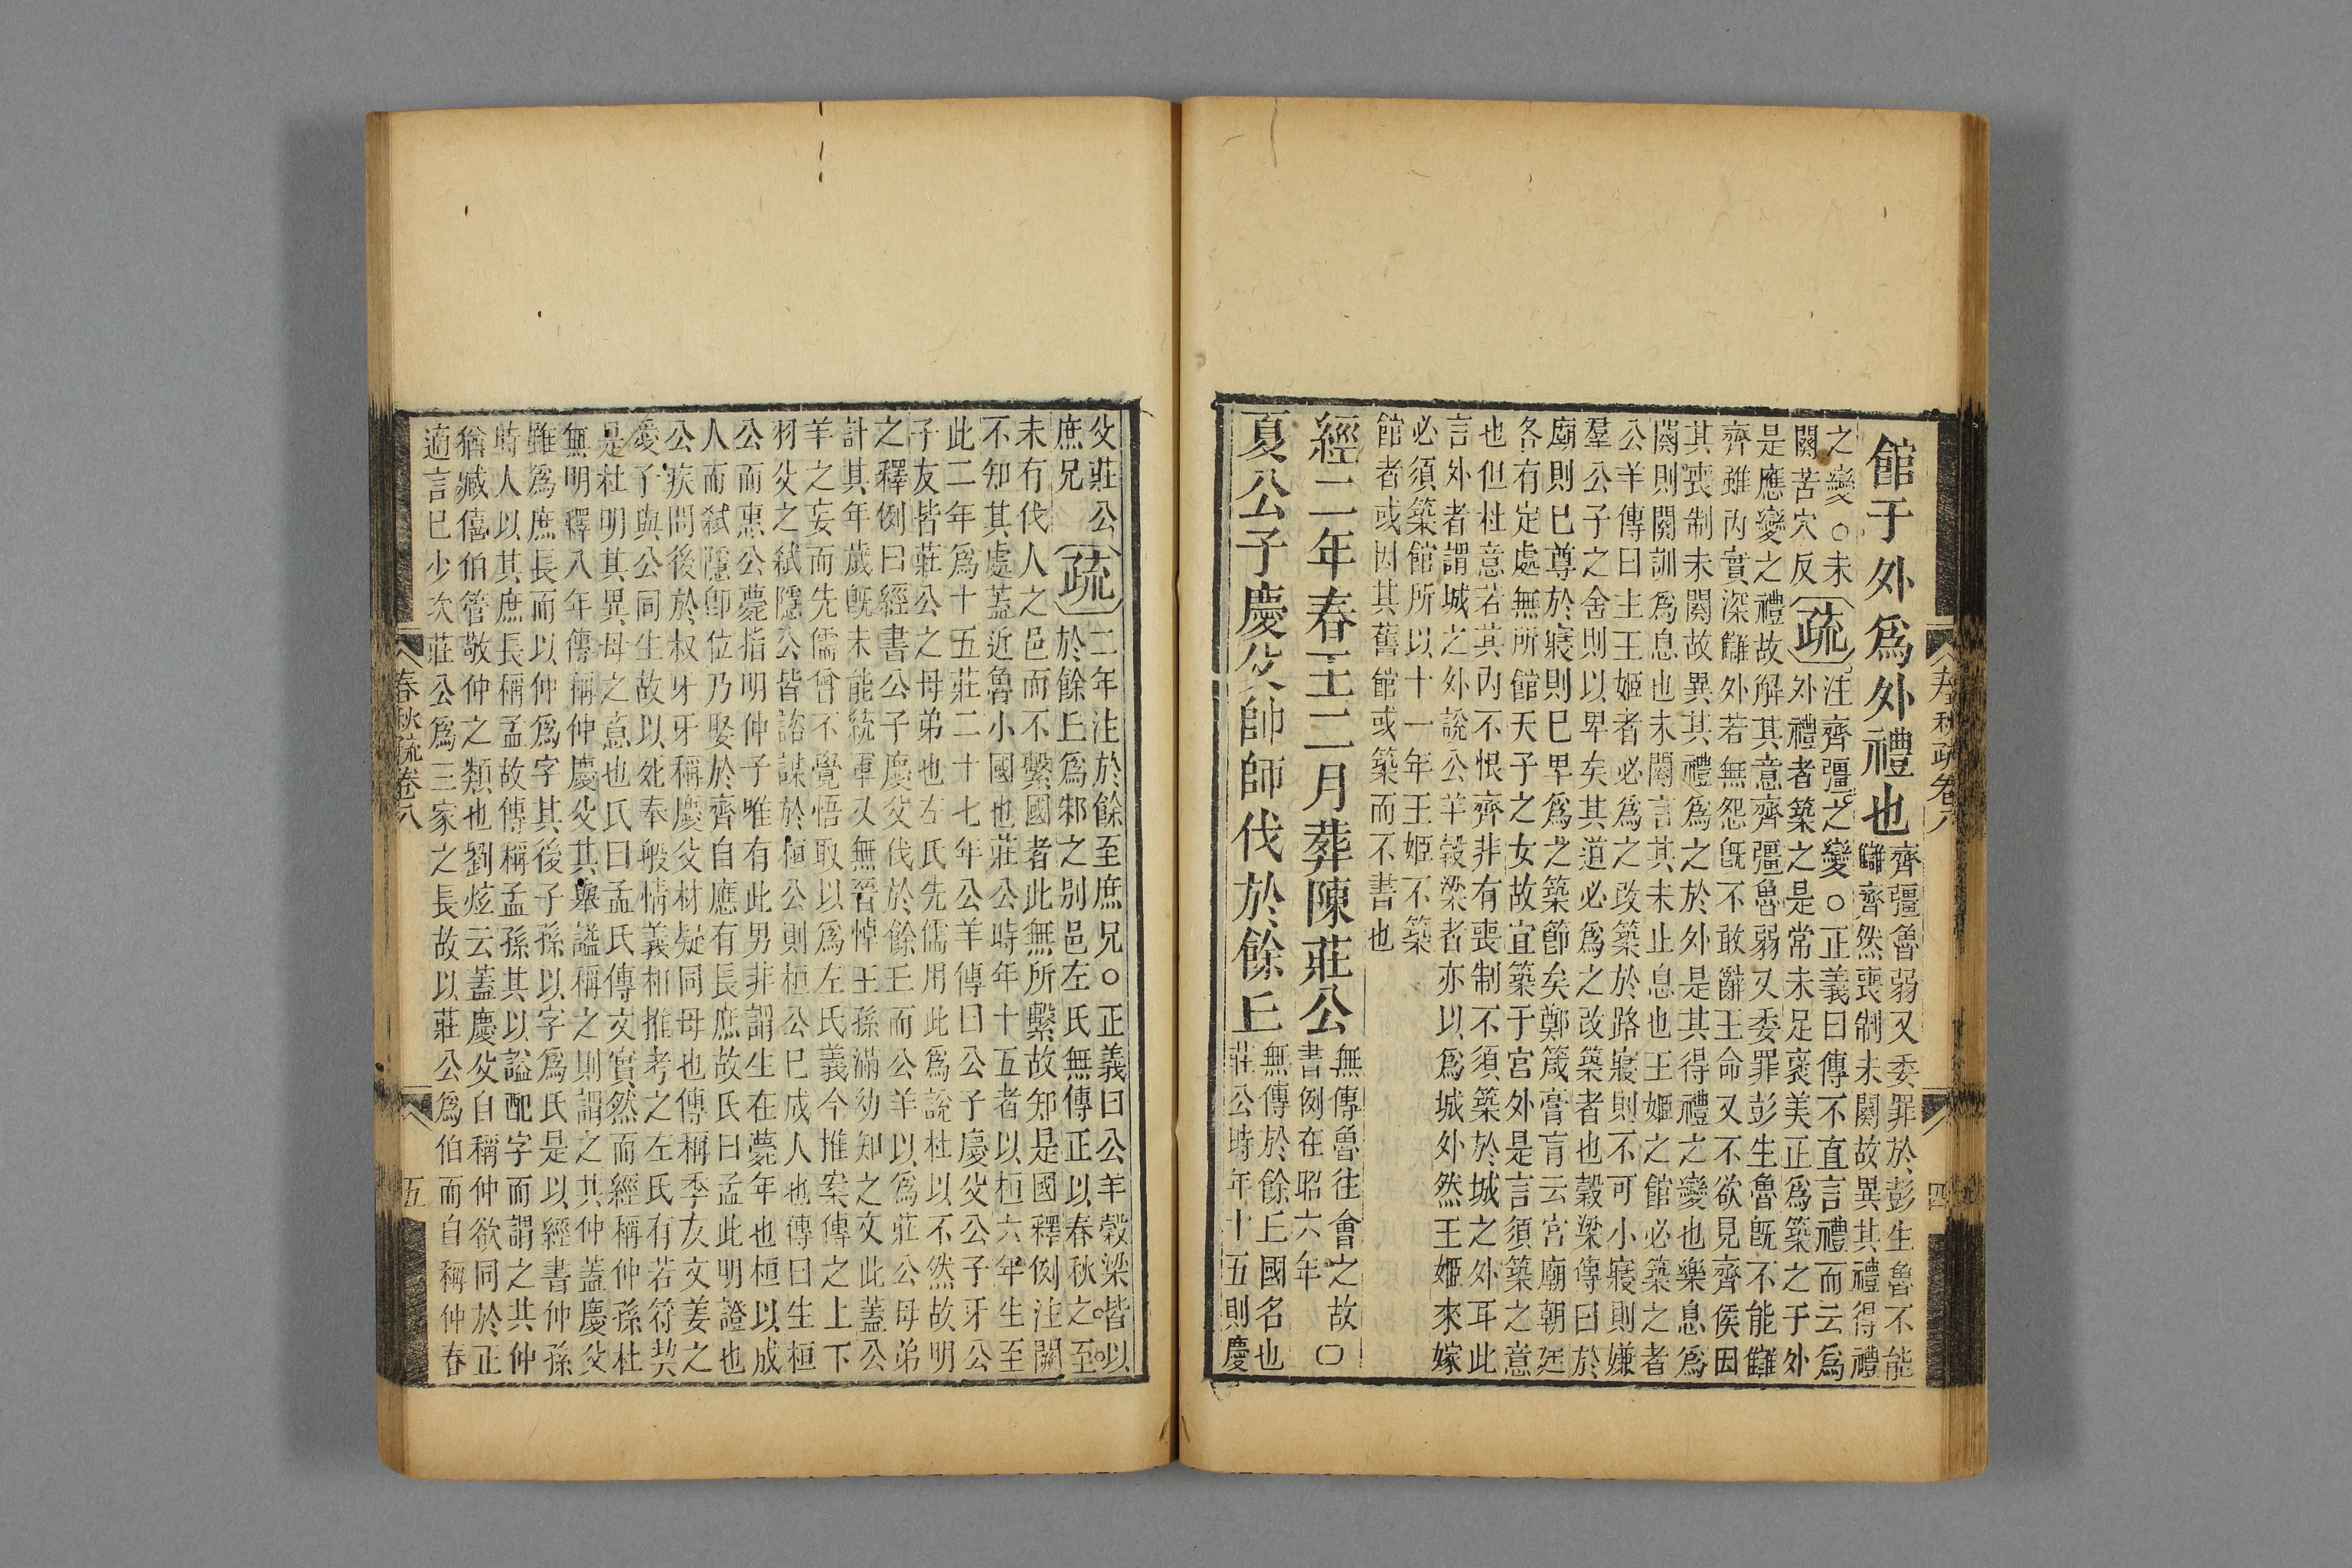 春秋疏卷八
四
館于外爲外禮也
齊彊魯弱又委罪於彭生魯不能
讎齊然喪制未闋故異其禮得禮
之變○未
闋苦穴反
疏
注齊彊之變○正義曰傳不直言禮而云爲
外禮者築之是常未足褒美正爲築之于外
是應變之禮故解其意齊彊魯弱又委罪彭生魯既不能讎
齊雖內實深讎外若無怨既不敢辭王命又不欲見齊侯因
其喪制未闋故異其禮爲之於外是其得禮之變也樂息爲
闋則闋訓爲息也未闋言其未止息也王姬之館必築之者
公羊傳曰主王姬者必爲之改築於路寢則不可小寢則嫌
羣公子之舍則以卑矣其道必爲之改築者也穀梁傳曰於
廟則已尊於寢則已卑爲之築節矣鄭箴膏肓云宮廟朝廷
各有定處無所館天子之女故宜築于宮外是言須築之意
也但杜意若其內不恨齊非有喪制不須築於城之外耳此
言外者謂城之外說公羊穀梁者亦以爲城外然王姬來嫁
必須築館所以十一年王姬不築
館者或因其舊館或築而不書也
經二年春王二月葬陳莊公
無傳魯往會之故○
書例在昭六年
夏公子慶父帥師伐於餘丘
無傳於餘丘國名也
莊公時年十五則慶
父莊公
庶兄
疏
二年注於餘至庶兄○正義曰公羊穀梁皆以
於餘丘爲邾之別邑左氏無傳正以春秋之至
未有伐人之邑而不繫國者此無所繫故知是國釋例注闕
不知其處蓋近魯小國也莊公時年十五者以桓六年生至
此二年爲十五莊二十七年公羊傳曰公子慶父公子牙公
子友皆莊公之母弟也左氏先儒用此爲說杜以不然故明
之釋例曰經書公子慶父伐於餘丘而公羊以爲莊公母弟
計其年歲既未能統軍又無晉悼王孫滿幼知之文此蓋公
羊之妄而先儒曾不覺悟取以爲左氏義今推案傳之上下
羽父之弒隱公皆諮謀於桓公則桓公已成人也傳曰生桓
公而惠公薨指明仲子唯有此男非謂生在薨年也桓以成
人而弒隱卽位乃娶於齊自應有長庶故氏曰孟此明證也
公疾問後於叔牙牙稱慶父材疑同母也傳稱季友文姜之
愛子與公同生故以死奉般情義相推考之左氏有若符契
是杜明其異母之意也氏曰孟氏傳文實然而經稱仲孫杜
無明釋八年傳稱仲慶父其舉謚稱之則謂之共仲蓋慶父
雖爲庶長而以仲爲字其後子孫以字爲氏是以經書仲孫
時人以其庶長稱孟故傳稱孟孫其以謚配字而謂之共仲
猶臧僖伯管敬仲之類也劉炫云蓋慶父自稱仲欲同於正
適言已少次莊公爲三家之長故以莊公爲伯而自稱仲春
春秋疏卷八
五